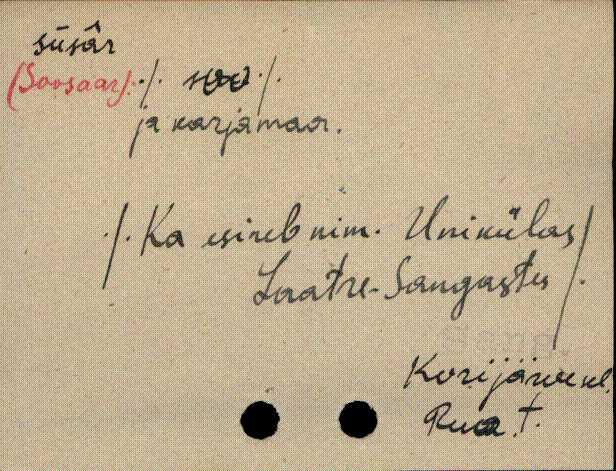 süsâr
(Soosaar). ·/. soo ·/.
ja karjamaa.
·/. Ka esineb nim. Unikülas
Laatre-Sangastes /.
Korijärve kl.